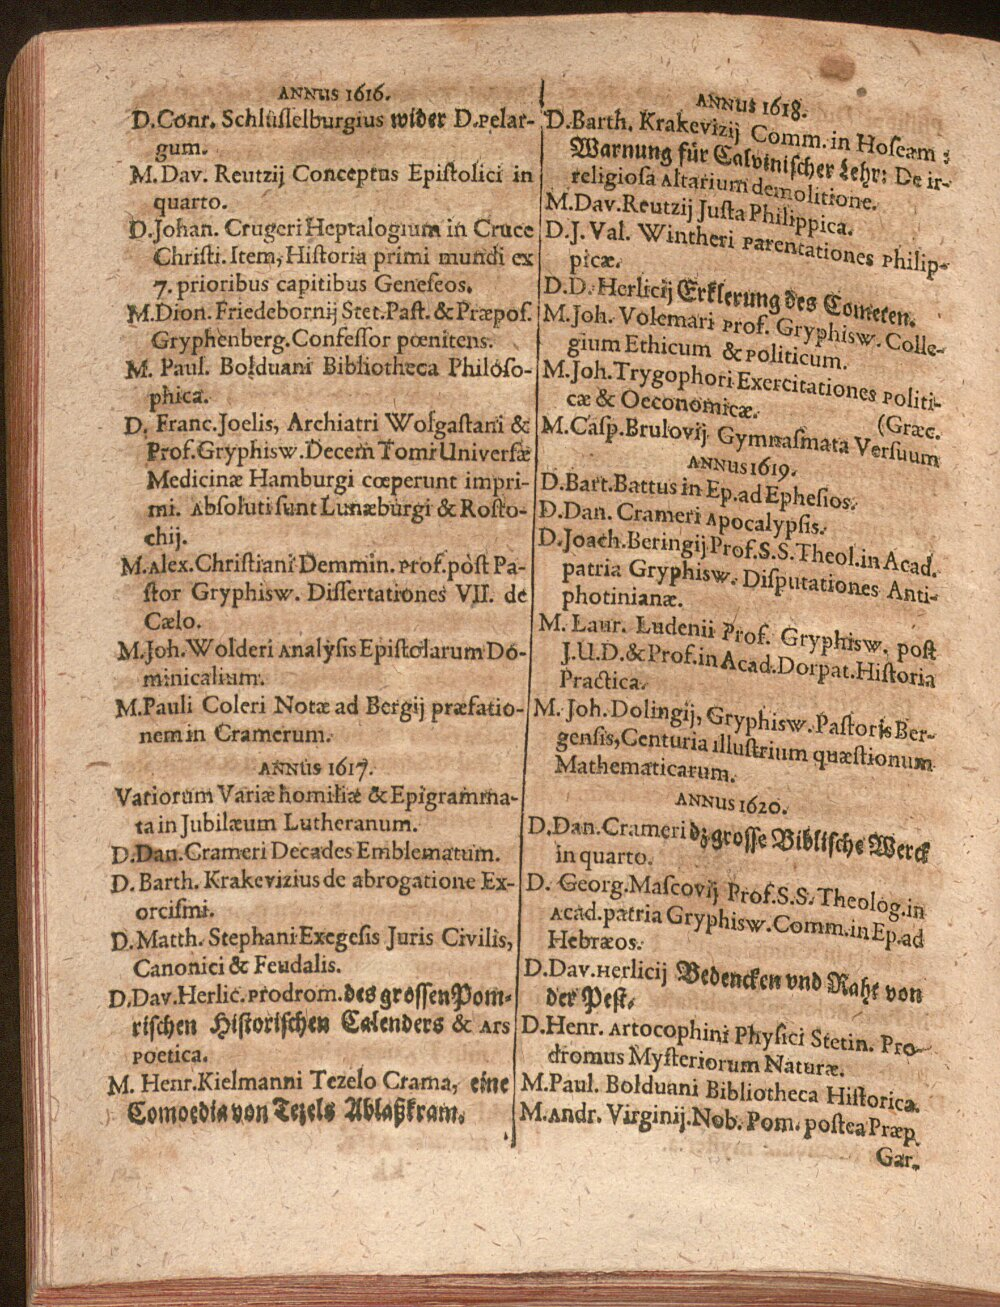 ANNUS 1616.
D.Conr. Schlüsselburgius wider D.Pelar-
gum.
M.Dav. Reutzij Conceptus Epistolici in
quarto.
D.Johan. Crugeri Heptalogium in Cruce
Christi. Item, Historia primi mundi ex
7. prioribus capitibus Geneseos.
M.Dion. Friedebornij Stet.Past. & Præpos.
Gryphenberg.Confessor pœnitens.
M. Paul. Bolduani Bibliotheca Philoso-
phica.
D. Franc.Joelis, Archiatri Wolgastani &
Prof.Gryphisw.Decem Tomi Universæ
Medicinæ Hamburgi cœperunt impri-
mi. Absoluti sunt Lunæburgi & Rosto-
chij.
M.Alex.Christiani Demmin. Prof.pòst Pa-
stor Gryphisw. Dissertationes VII. de
Cælo.
M.Joh.Wolderi Analysis Epistolarum Do-
minicalium.
M.Pauli Coleri Notæ ad Bergij præfatio-
nem in Cramerum.
ANNUS 1617.
Variorum Variæ homiliæ & Epigramma-
ta in Jubilæum Lutheranum.
D.Dan.Crameri Decades Emblematum.
D. Barth. Krakevizius de abrogatione Ex-
orcismi.
D.Matth. Stephani Exegesis Juris Civilis,
Canonici & Feudalis.
D.Dav.Herlic.Prodrom.des grossen Pom-
rischen Historischen Calenders & Ars
Poetica.
M. Henr.Kielmanni Tezelo Crama, eine
Comoedia von Tezels Ablaßkram.
ANNUS 1618.
D.Barth. Krakevizij Comm. in Hoseam :
Warnung für Calvinischer Lehr: De ir-
religiosa Altarium demolitione.
M.Dav.Reutzij Justa Philippica.
D.J. Val. Wintheri Parentationes Philip-
picæ.
D.D. Herlicij Erklerung des Cometen.
M.Joh. Volemari Prof. Gryphisw. Colle-
gium Ethicum & Politicum.
M.Joh.Trygophori Exercitationes Politi-
cæ & Oeconomicæ.
(Græc.
M.Casp.Brulovij Gymnasmata Versuum
ANNUS 1619.
D.Bart.Battus in Ep.ad Ephesios.
D.Dan. Crameri Apocalypsis.
D.Joach.Beringij Prof.S.S.Theol.in Acad.
patria Gryphisw. Disputationes Anti-
photinianæ.
M. Laur. Ludenii Prof. Gryphisw. post
J.U.D.& Prof.in Acad.Dorpat.Historia
Practica.
M. Joh. Dolingij, Gryphisw.Pastoris Ber-
gensis,Centuria illustrium quæstionum
Mathematicarum.
ANNUS 1620.
D.Dan.Crameri dz grosse Biblische Werck
in quarto.
D. Georg.Mascovij Prof.S.S.Theolog.in
Acad.patria Gryphisw.Comm.in Ep.ad
Hebræos.
D.Dav.Herlicij Bedencken vnd Raht von
der Pest.
D.Henr. Artocophini Physici Stetin. Pro-
dromus Mysteriorum Naturæ.
M.Paul. Bolduani Bibliotheca Historica.
M.Andr. Virginij.Nob. Pom. postea Præp.
Gar.